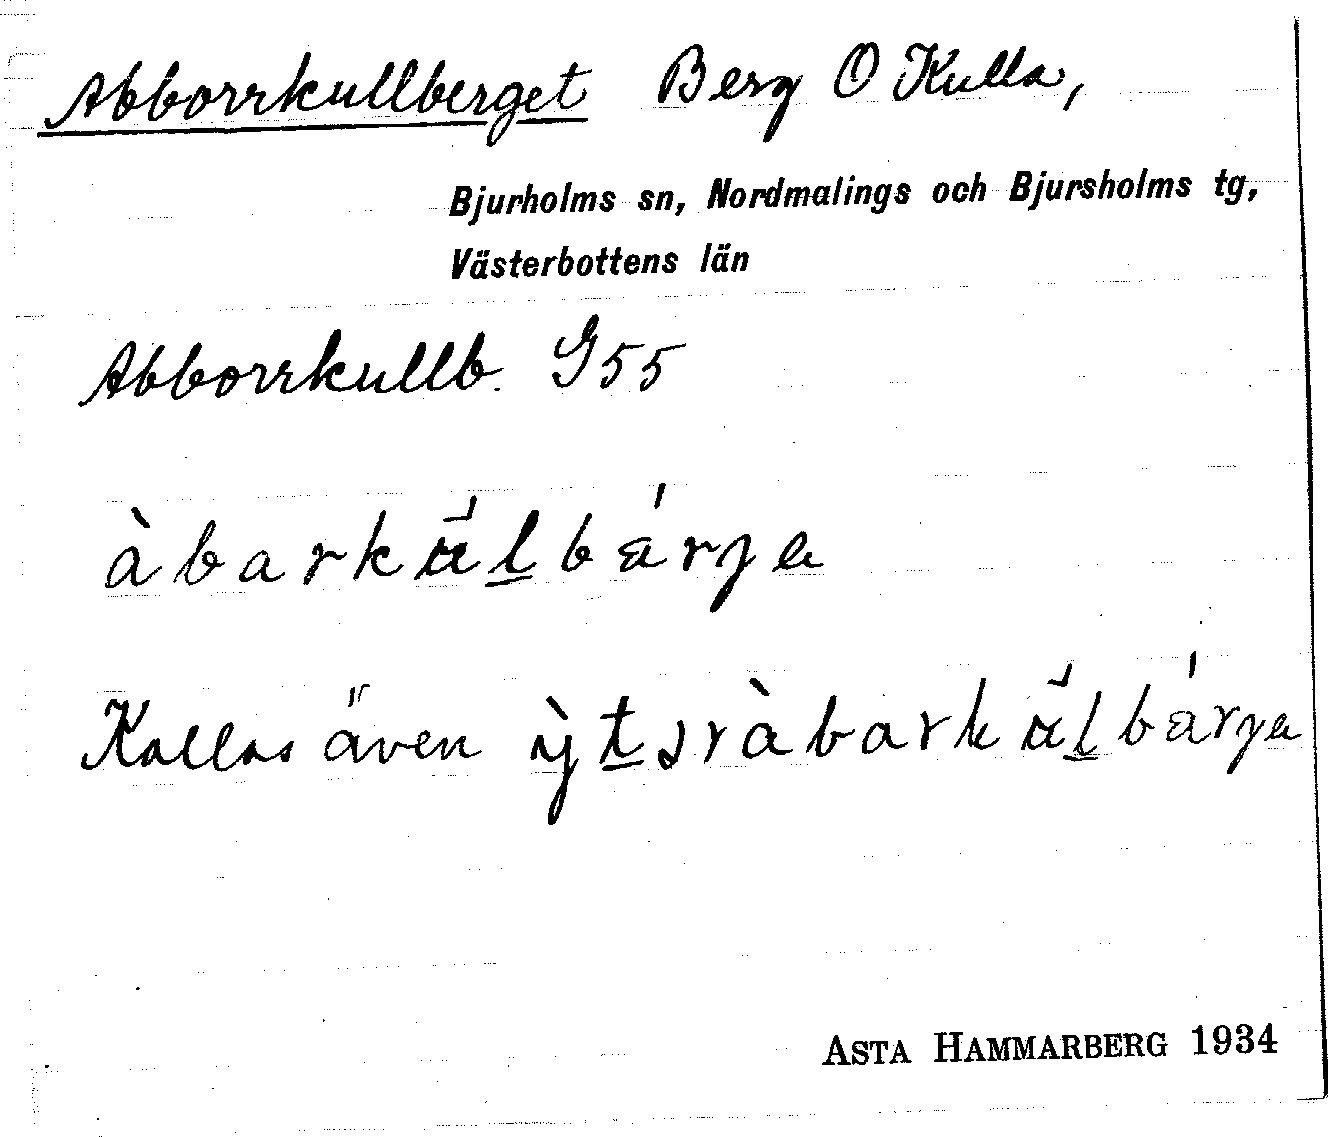 Abborrkullberget Berg O Kulla,
Bjurholms sn, Nordmalings och Bjursholms tg,
Västerbottens län
Abborrkullb. G55
àbarkü̯ḻbárga
Kallas även ỳṯsràbarküḻbárga
ASTA HAMMARBERG 1934